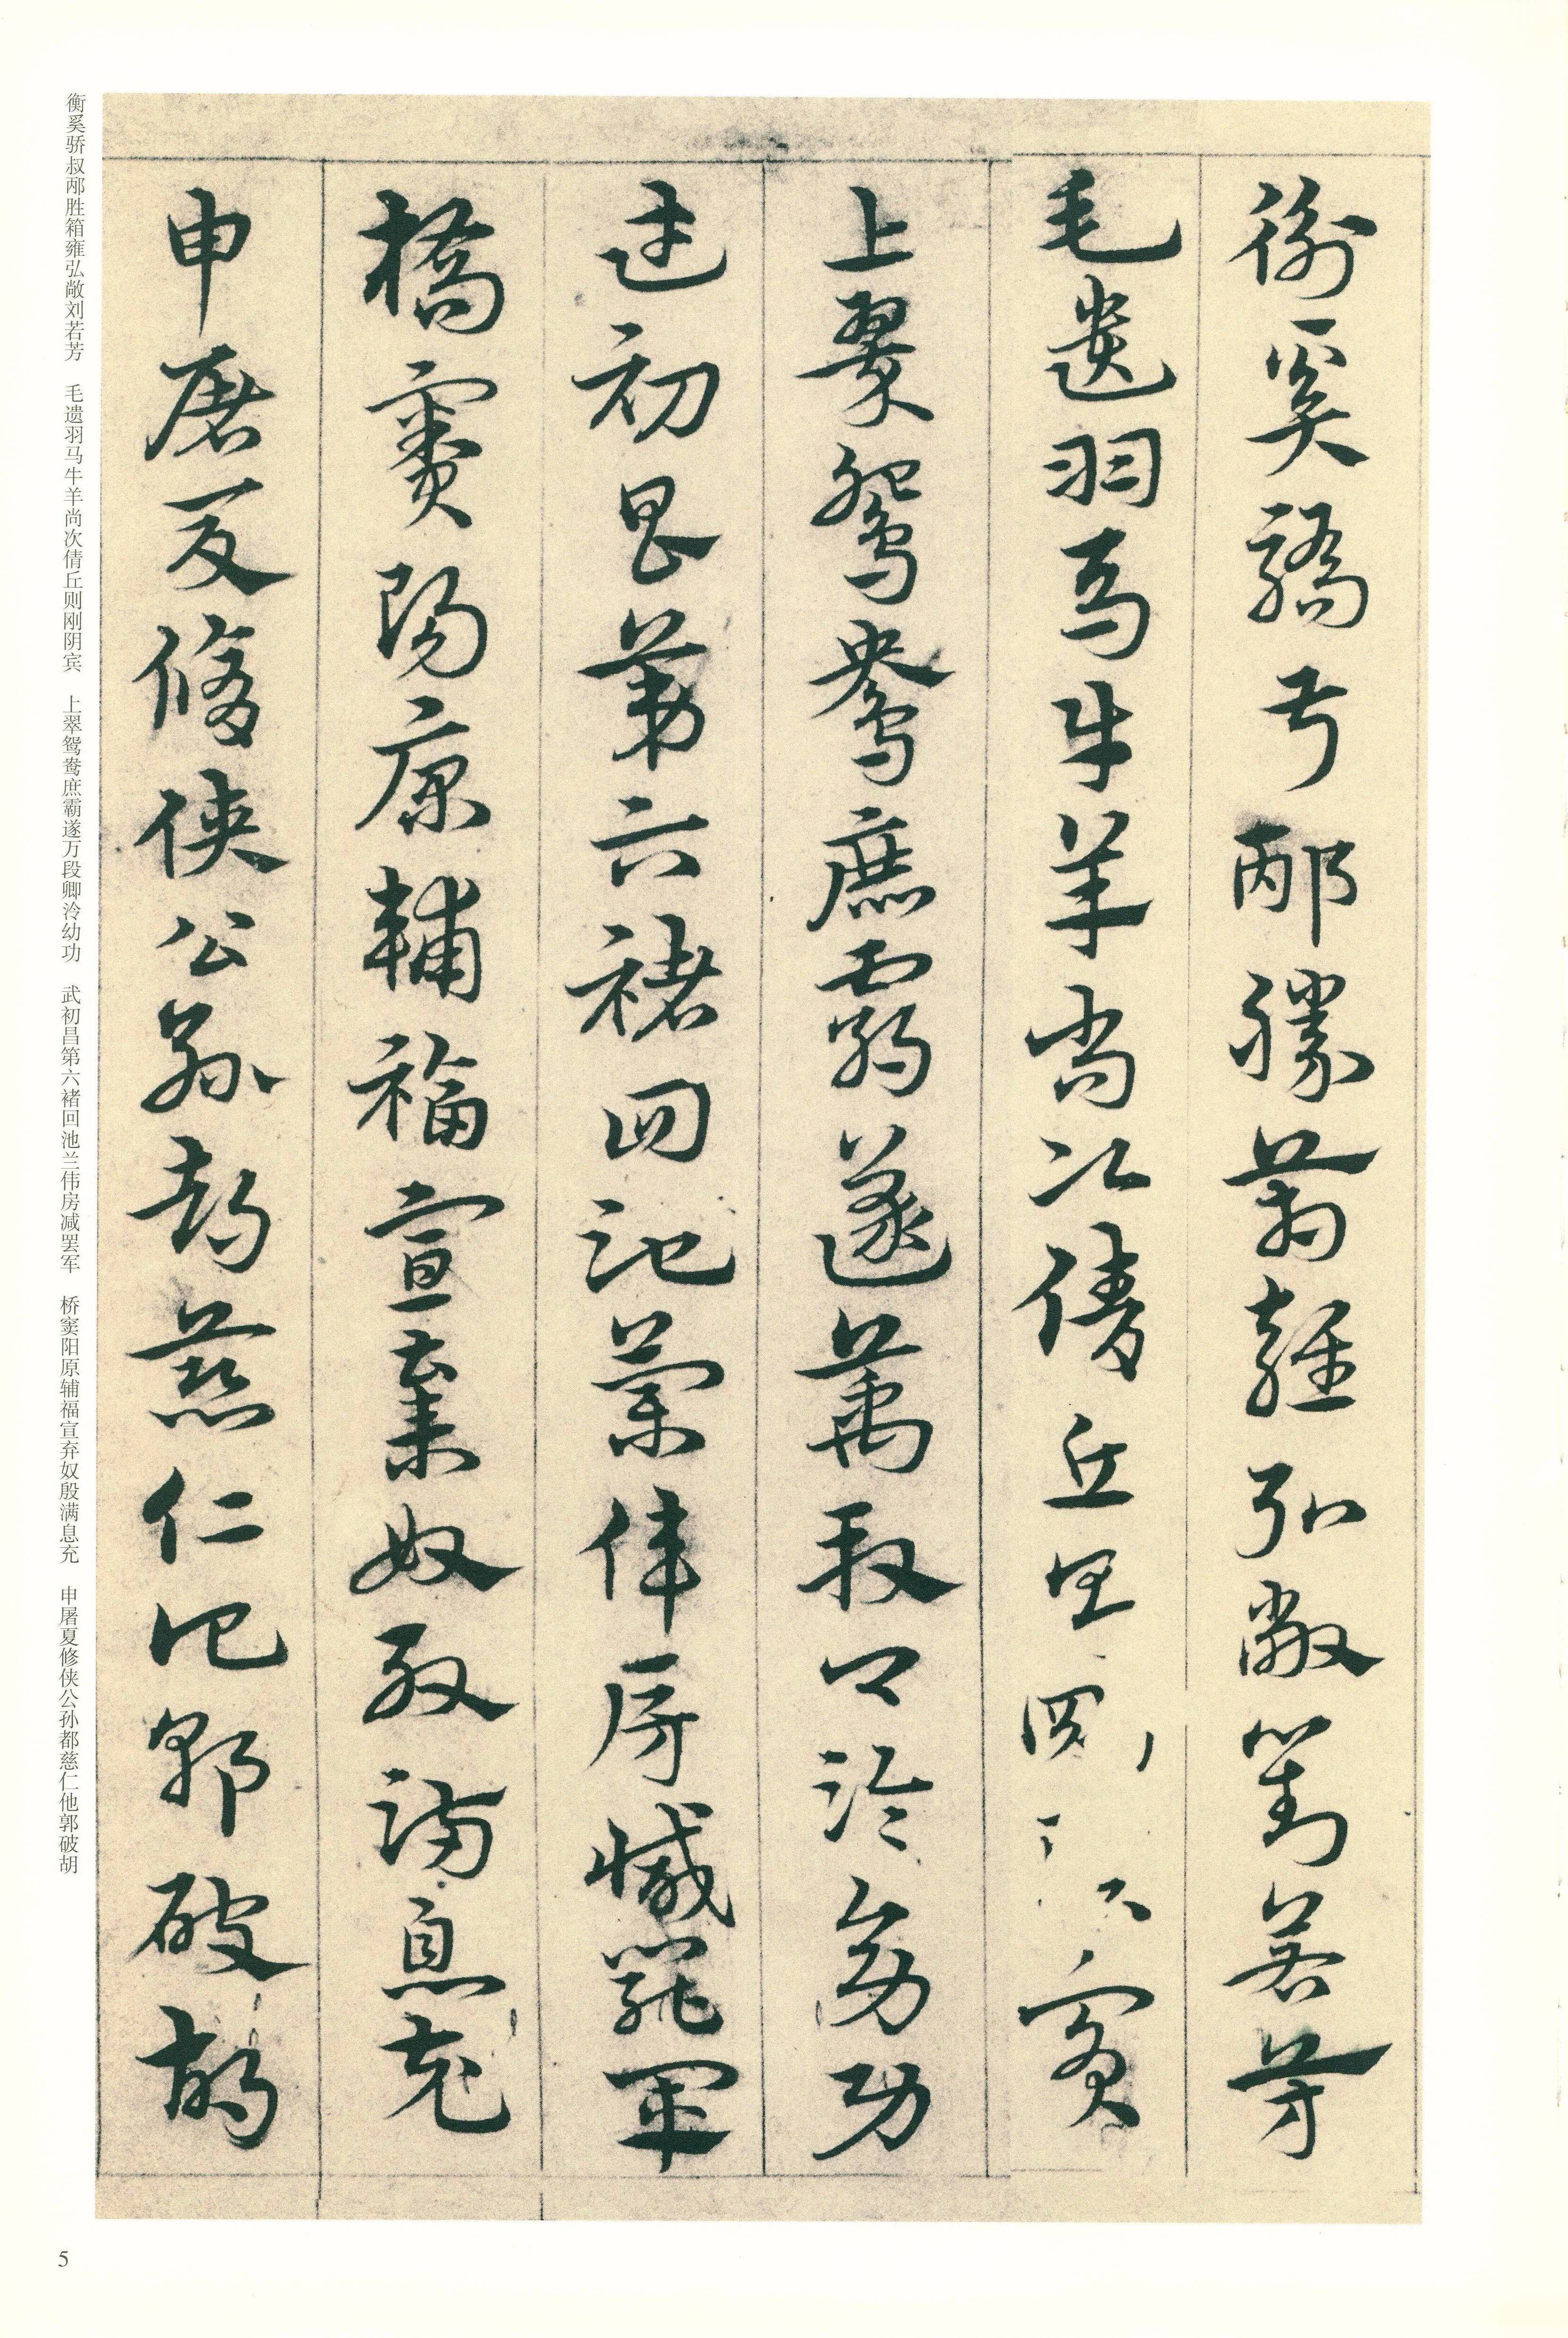 衡奚驕叔邴勝箱雍弘敞劉若芳
毛遺羽馬牛羊尚次倩丘則剛陰賓
上翠鴛鴦庶霸遂萬段卿泠幼功
武初昌第六褚回池蘭偉房減罷軍
橋竇陽原輔福宣棄奴殷滿息充
申屠夏脩俠公孫都慈仁他郭破胡
衡奚骄叔邴胜箱雍弘敞刘若芳　毛遗羽马牛羊尚次倩丘则刚阴宾　上翠鸳鸯庶霸遂万段卿泠幼功　武初昌第六褚回池兰伟房减罢军　桥窦阳原辅福宣弃奴殷满息充　申屠夏修侠公孙都慈仁他郭破胡
5